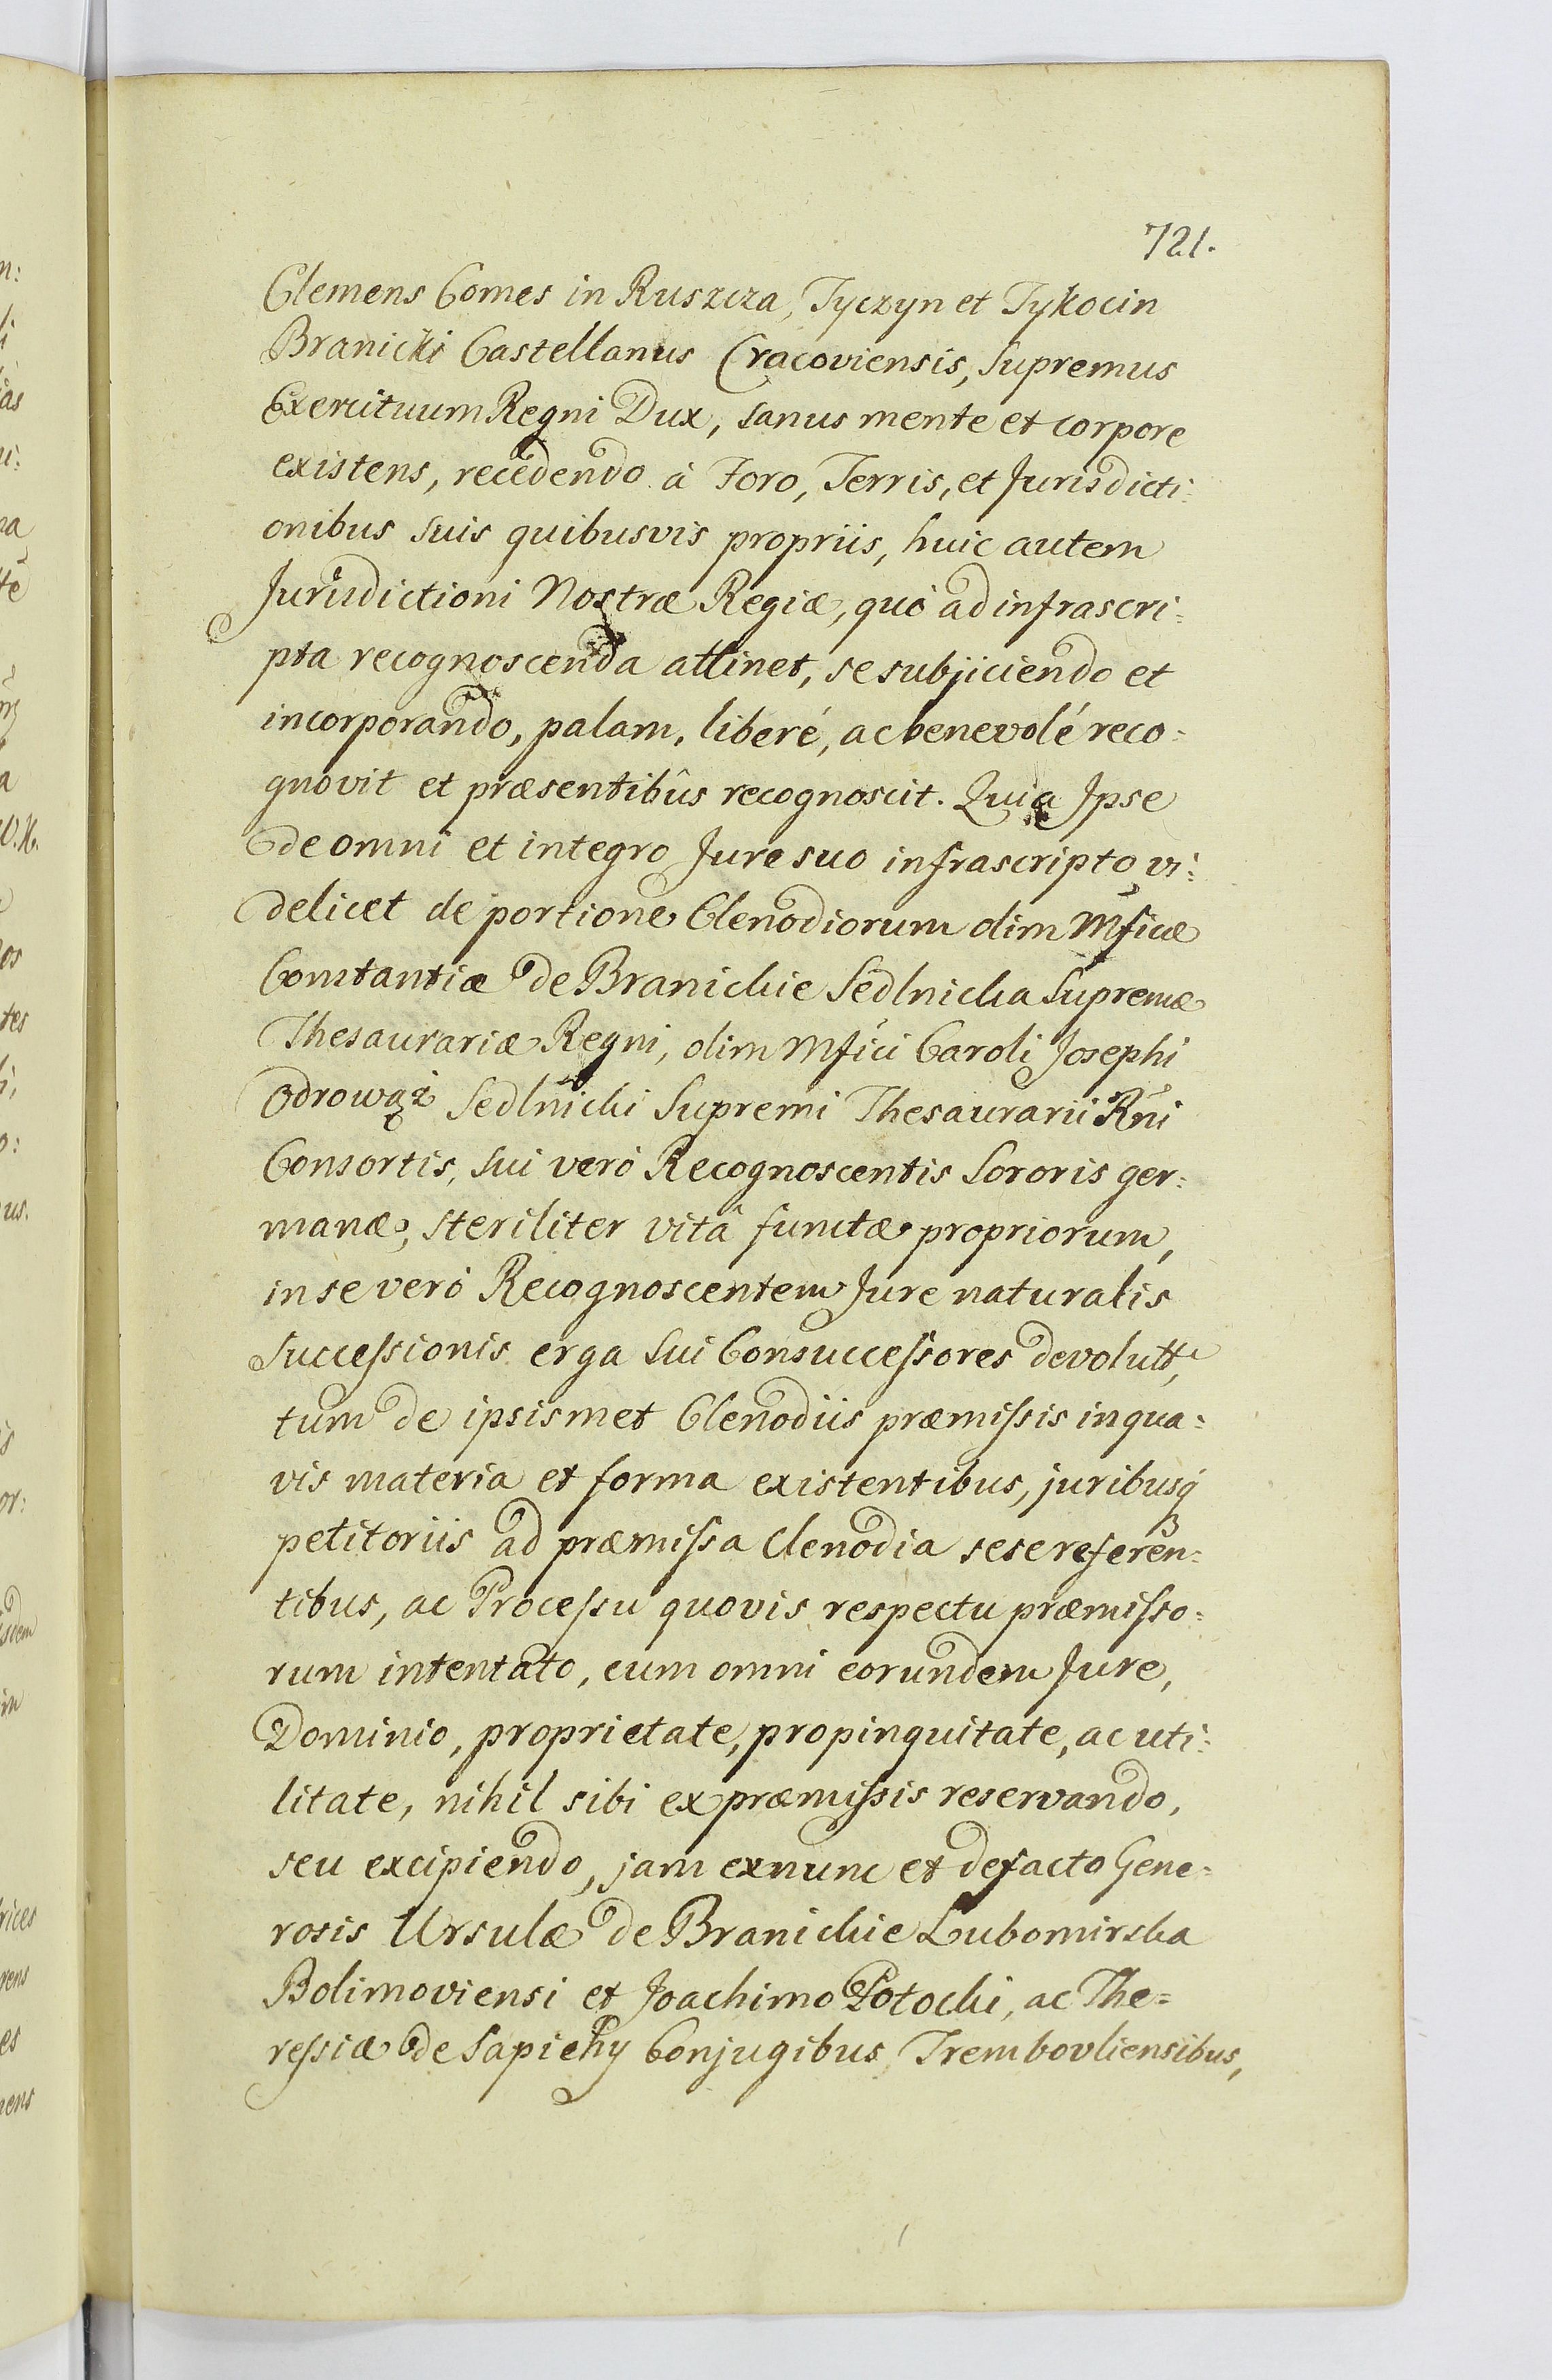 721.
Clemens Comes in Ruszcza, Tyczyn et Tykocin
Branicki Castellanus Cracoviensis, Supremus
Exercituum Regni Dux, sanus mente et corpore
existens, recedendo à Foro, Terris, et Jurisdicti:
onibus suis quibusvis propriis, huic autem
Jurisdictioni Nostræ Regiæ, quò ad infrascri:
pta recognoscenda attinet, se subjiciendo et
incorporando, palam, liberé, ac benevolé reco:
gnovit et præsentibûs recognoscit. Quia Ipse
de omni et integro Jure suo infrascripto vi:
delicet de portione Clenodiorum olim Mficæ
Constantiæ de Branickie Sedlnicka Supremæ
Thesaurariæ Regni, olim Mfici Caroli Josephi
Odrowąż Sedlnicki Supremi Thesaurarii Rni
Consortis, sui verò Recognoscentis Sororis ger:
manæ, steriliter vitâ functæ propriorum,
in se verò Recognoscentem Jure naturalis
Successionis erga sui Consuccessores devolutt,
tum de ipsismet Clenodiis præmissis in qua:
vis materia et forma existentibus, juribusq
petitoriis ad præmissa Clenodia sese referen:
tibus, ac Processu quovis respectu præmisso:
rum intentato, cum omni eorundem Jure,
Dominio, proprietate, propinquitate, ac uti:
litate, nihil sibi ex præmissis reservando,
seu excipiendo, jam exnunc et defacto Gene:
rosis Ursulæ de Branickie Lubomirska
Bolimoviensi et Joachimo Potocki, ac The=
ressiæ de Sapiehy Conjugibus Trembovliensibus,